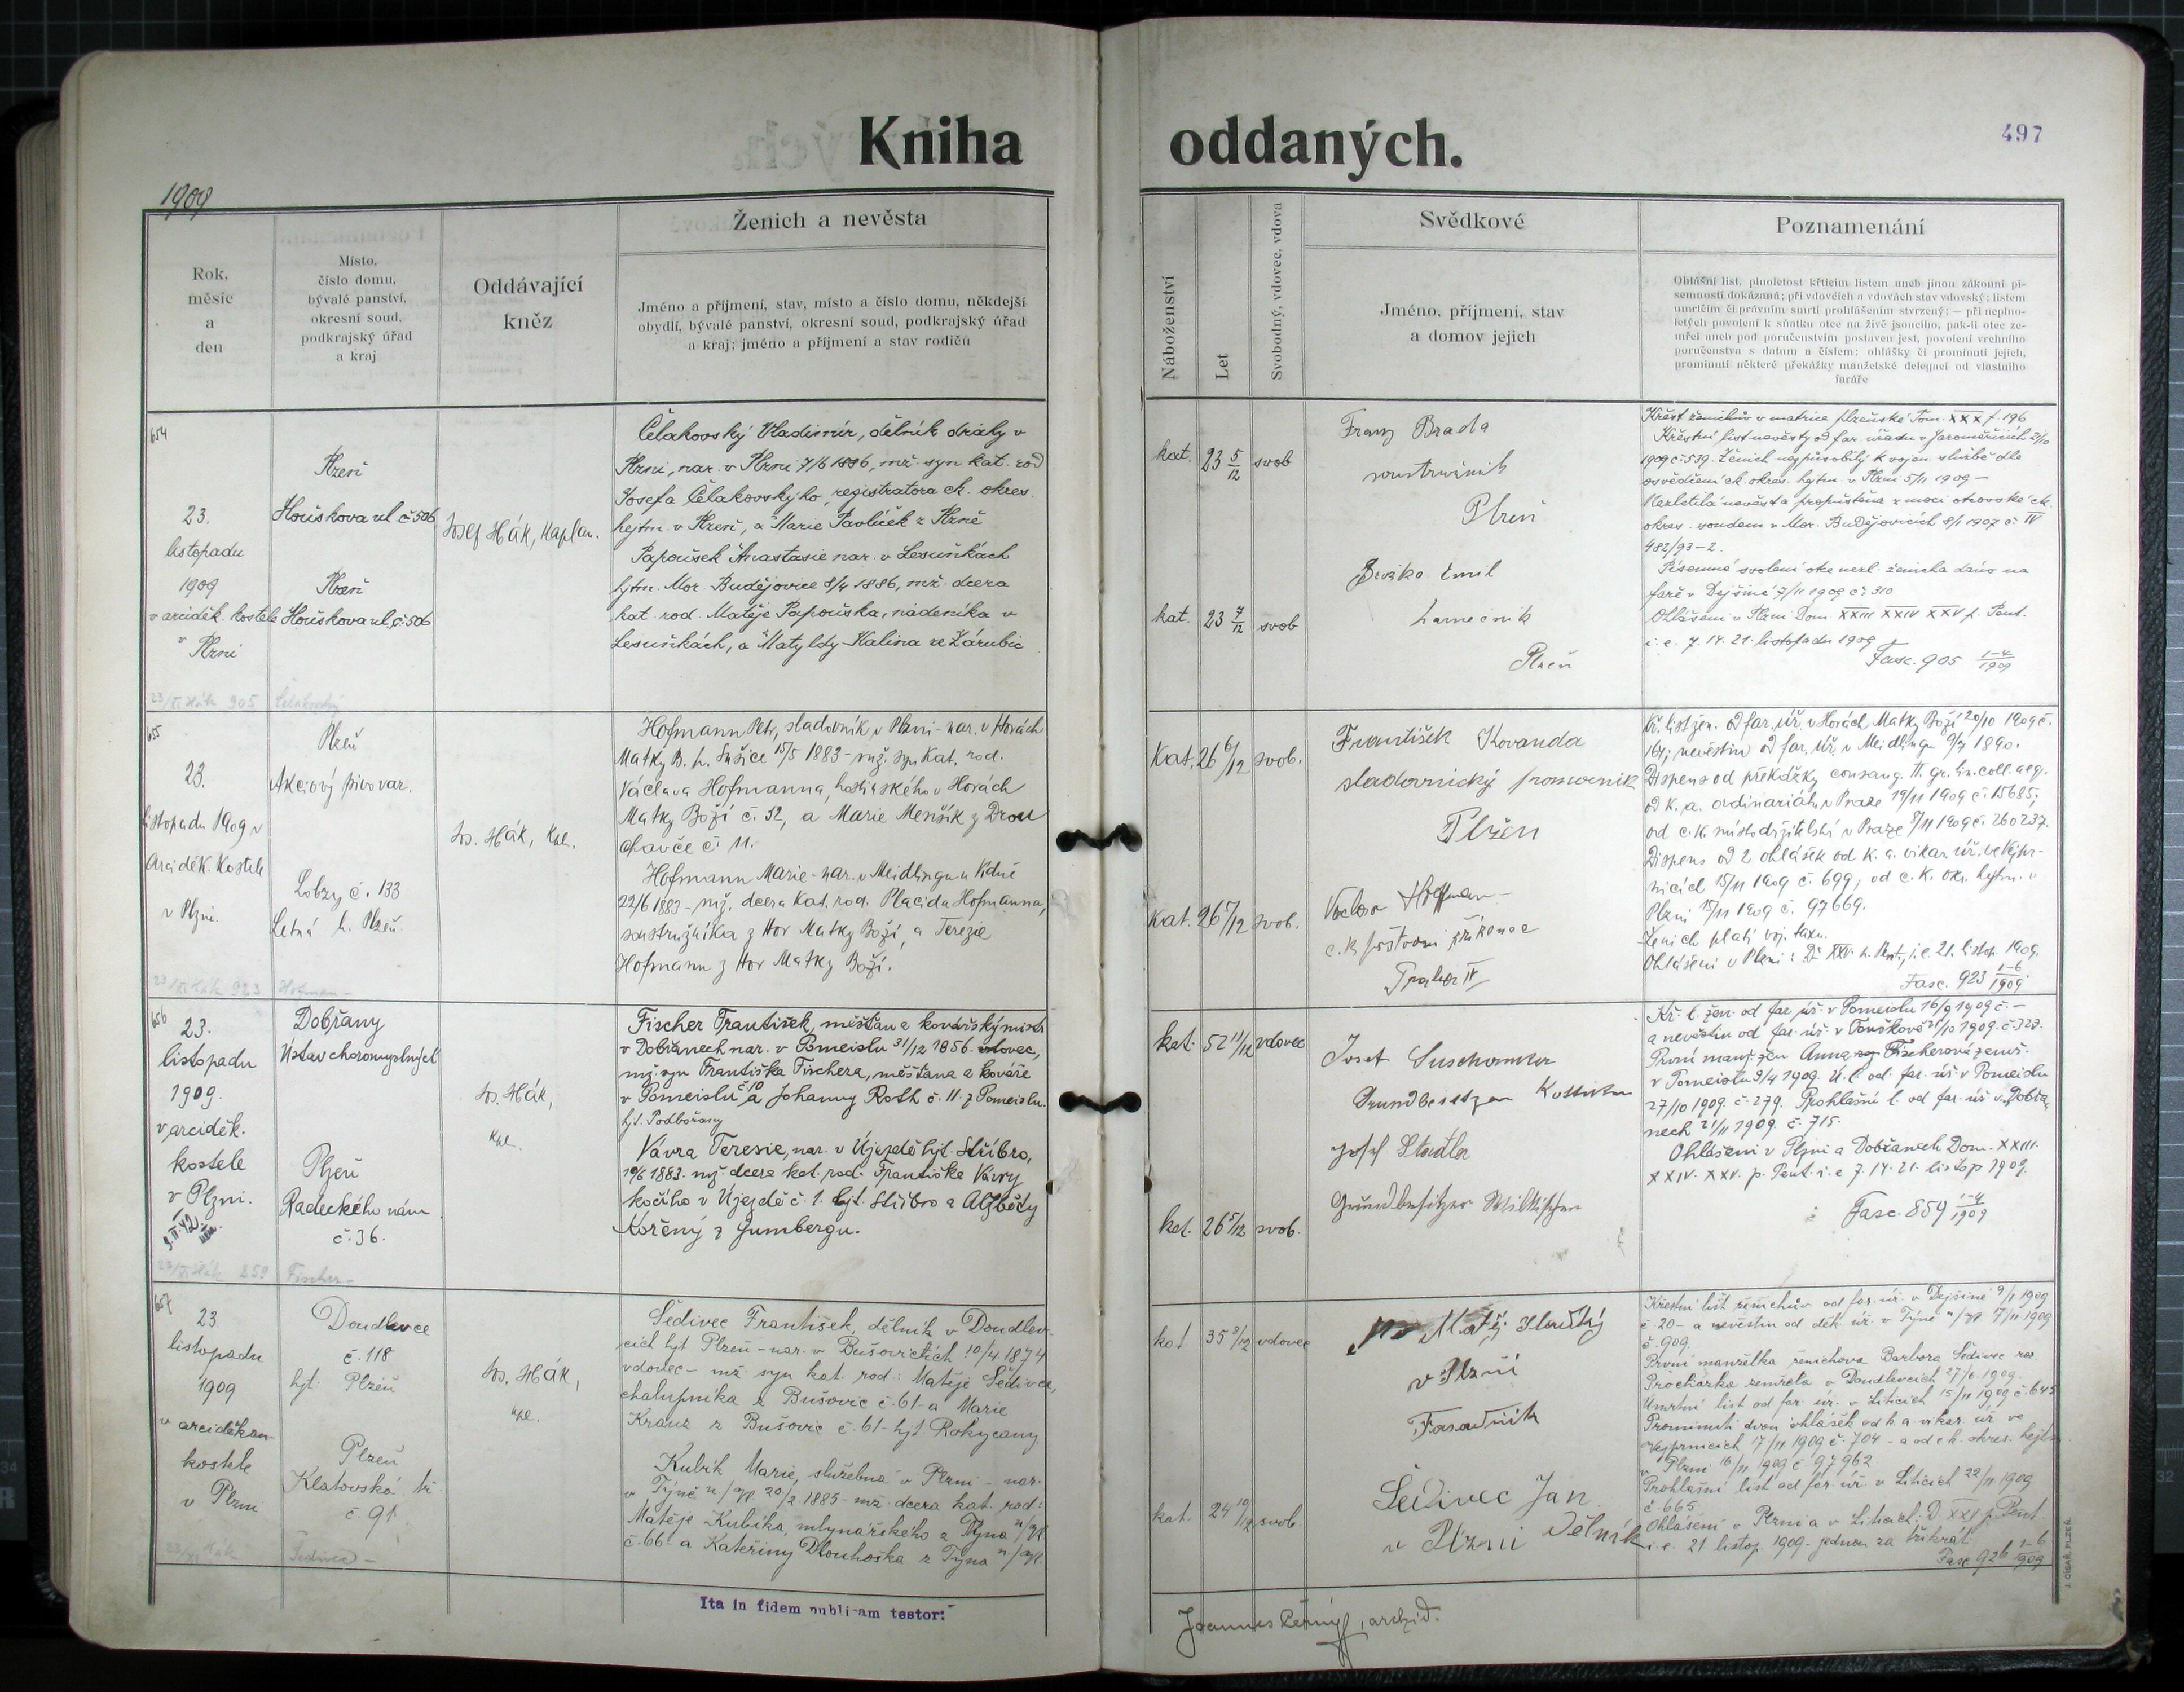 Kniha oddaných.
497
1909
Rok, měsíc a den
Místo, číslo domu, bývalé panství, okresní soud, podkrajský úřad a kraj
Oddávající kněz
Ženich a nevěsta
Jméno a příjmení, stav, místo a číslo domu, někdejší
obydlí, bývalé panství, okresní soud, podkrajský úřad
a kraj; jméno a příjmení a stav rodičů
Náboženství
Let
Svobodný, vdovec, vdova
Svědkové
Jméno, příjmení, stav
a domov jejich
Poznamenání
Ohlášní list, plnoletost křticím listem aneb jinou zákonní pí-
semností dokázaná; při vdovcích a vdovách stav vdovský; listem
umrlčím či právním smrti prohlášením stvrzený; — při neplno-
letých povolení k sňatku otce na živě jsoucího, pak-li otec ze-
mřel aneb pod poručenstvím postaven jest, povolení vrchního
poručenstva s datum a číslem; ohlášky či prominutí jejich,
prominutí některé překážky manželské delegací od vlastního
faráře
654
23.
listopadu
1909
v arciděk. kostele
v Plzni
Plzeň
Houškova ul č 506
Plzeň
Houškova ul. č. 506
Josef Hák, Kaplan.
Čelakovský Vladimír, dělník dráhy v
Plzni, nar. v Plzni 7/6 1886, mž. syn kat. rod
Josefa Čelakovského, registratora ck. okres.
hejtm. v Plzni, a Marie Pavlíček z Plzně
Papoušek Anastasie nar. v Lesuňkách
hjtm. Mor. Budějovice 8/4 1886, mž. dcera
kat. rod. Matěje Papouška, nádeníka v
Lesuňkách, a Matyldy Kalina ze Zárubic
kat. 23 5/12 svob
kat. 23 7/12 svob
Franz Brada
soustružník
Plzeň
Brožka Emil
Plzeň
Křest ženichův v matrice plzeňské Tom. XXX f. 196
Křestní list nevěsty od far. úřadu v Jaroměřicích 2/10
1909 č. 539. Ženich nezpůsobilý k vojen. službě dle
osvědčení ck. okres. hejtm. v Plzni 5/11 1909 –
Nezletilá nevěsta propuštěna z moci otcovské ck.
okres. soudem v Mor. Budějovicích 8/1 1907 č. IV
482/93–2.
Písemné svolení otce nezl. ženicha dáno na
faře v Dejšině 7/11 1909 č. 310
Ohlášeni v Plzni Dom. XXIII XXIV XXV p. Pent.
i. e. 7. 14. 21. listopadu 1909
Fasc. 905 1–4/1909
23/XI Hák 905 Čelakovský
655
23.
listopadu 1909 v
Arciděk. Kostele
v Plzni.
Plzeň
Akciový pivovar.
Lobzy č. 133
Letná h. Plzeň.
Jos. Hák, Kpl.
Hofmann Petr, sladovník v Plzni – nar. v Horách
Matky B. h. Sušice 15/5 1883 – mž. syn Kat. rod.
Václava Hofmanna, hostinského v Horách
Matky Boží č. 52, a Marie Menšík z Drou
havče č. 11.
Hofmann Marie – nar. v Meidlingu u Vídně
22/6 1883 – mž. dcera Kat. rod. Placida Hofmanna,
soustružníka z Hor Matky Boží, a Terezie
Hofmann z Hor Matky Boží.
Kat. 26 6/12 svob.
Kat. 26 5/12 svob.
František Kovanda
sladovnický pomocník
Plzeň
c. k. poštovní zřízenec
Praha IV
Kř. list žen. od far. úř. v Horách Matky Boží 20/10 1909 č.
164; nevěstin od far. úř. v Meidlingu 9/7 1890.
Dispens od překážky consang. II. gr. lin. coll. aeq.
od k. a. ordinariátu v Praze 19/11 1909 č. 15685;
od c. k. místodržitelství v Praze 8/11 1909 č. 260237.
Dispens od 2 ohlášek od k. a. vikar. úř. ve Vejpr-
nicích 15/11 1909 č. 699; od c. k. okr. hejtm. v
Plzni 15/11 1909 č. 97669.
Ženich platí voj. taxu.
Ohlášeni v Plzni: D. XXV. p. Pent., i. e. 21. listop. 1909.
Fasc. 923 1–6/1909
23/XI Hák 923 Hofman –
656
23.
listopadu
1909.
v arciděk.
kostele
v Plzni.
Dobřany
Ústav choromyslných
Plzeň
Radeckého nám
č. 36.
Jos. Hák,
Kpl.
Fischer František, měšťan a kovářský mistr
v Dobřanech nar. v Pomeislu 31/12 1856. vdovec,
mž. syn Františka Fischera, měšťana a kováře
v Pomeislu č. 10 a Johanny Roth č. 11. z Pomeislu.
hjt. Podbořany
Vávra Teresie, nar. v Újezdě hjt. Stříbro,
19/6 1883. mž. dcera kat. rod. Františka Vávry
kočího v Újezdě č. 1. hjt. Stříbro a Alžběty
Kořený z Gumbergu.
kat. 52 11/12 vdovec
kat. 26 5/12 svob.
Josef
Grundbesitzer
Josef Stadtler
Grundbesitzer
Kř. l. žen. od far. úř. v Pomeislu 16/9 1909 č. –
a nevěstin od far. úř. v Touškově 21/10 1909. č. 323.
První manž. žen Anna Fischerová zemř.
v Pomeislu 9/4 1909. Ú. l. od. far. úř. v Pomeislu
27/10 1909. č. 279. Prohlášní l. od far. úř. v Dobřa-
nech 21/11 1909. č. 715.
Ohlášeni v Plzni a Dobřanech Dom. XXIII.
XXIV. XXV. p. Pent. i. e. 7. 14. 21. listop 1909.
Fasc. 859 1–4/1909
23/XI Hák 859 Fischer –
657
23
listopadu
1909
v arciděkan.
kostele
v Plzni
Doudlevce
č. 118
hjt. Plzeň
Plzeň
Klatovská tř.
č. 91
Jos. Hák,
kpl.
Šedivec František, dělník v Doudlev-
cích hjt Plzeň – nar. v Bušovicích 10/4 1874
vdovec – mž. syn kat. rod.: Matěje Šedivce,
chalupníka z Bušovic č. 61 – a Marie
Kraus z Bušovic č. 61 – hjt. Rokycany.
Kubík Marie, služebná v Plzni – nar.
v Týně n/Vlt 20/2 1885 – mž. dcera kat. rod:
Matěje Kubíka, mlynářského z Týna n/Vlt
č. 66. a Kateřiny Dlouhoška z Týna n/Vlt.
kat. 35 8/12 vdovec
kat. 24 10/12 svob.
Matěj
v Plzni
Fasadník
Šedivec Jan
v Plzni Dělník
Křestní list ženichův od far. úř. v Dejšině 9/11 1909
č. 20 – a nevěstin od děk. úř. v Týně n/Vlt 7/11 1909
č. 909.
První manželka ženichova Barbora Šedivec roz.
Procházka zemřela v Doudlevcích 27/6 1909.
Úmrtní list od far. úř. v Liticích 15/11 1909 č. 645
Prominutí dvou ohlášek od k. a. vikar. úř. ve
Vejprnicích 17/11 1909 č. 704 – a od c. k. okres. hejt.
v Plzni 16/11 1909 č. 97962.
Prohlášní list od far. úř. v Liticích 22/11 1909
č. 665.
Ohlášení v Plzni a v Liticích: D. XXV p. Pent.
i. e. 21 listop. 1909 – jednou za třikrát.
Fasc 926 1–6/1909
23/XI Hák Šedivec –
Ita in fidem publicam testor:
Joannes Černý, archid.
J. CÍSAŘ, PLZEŇ.